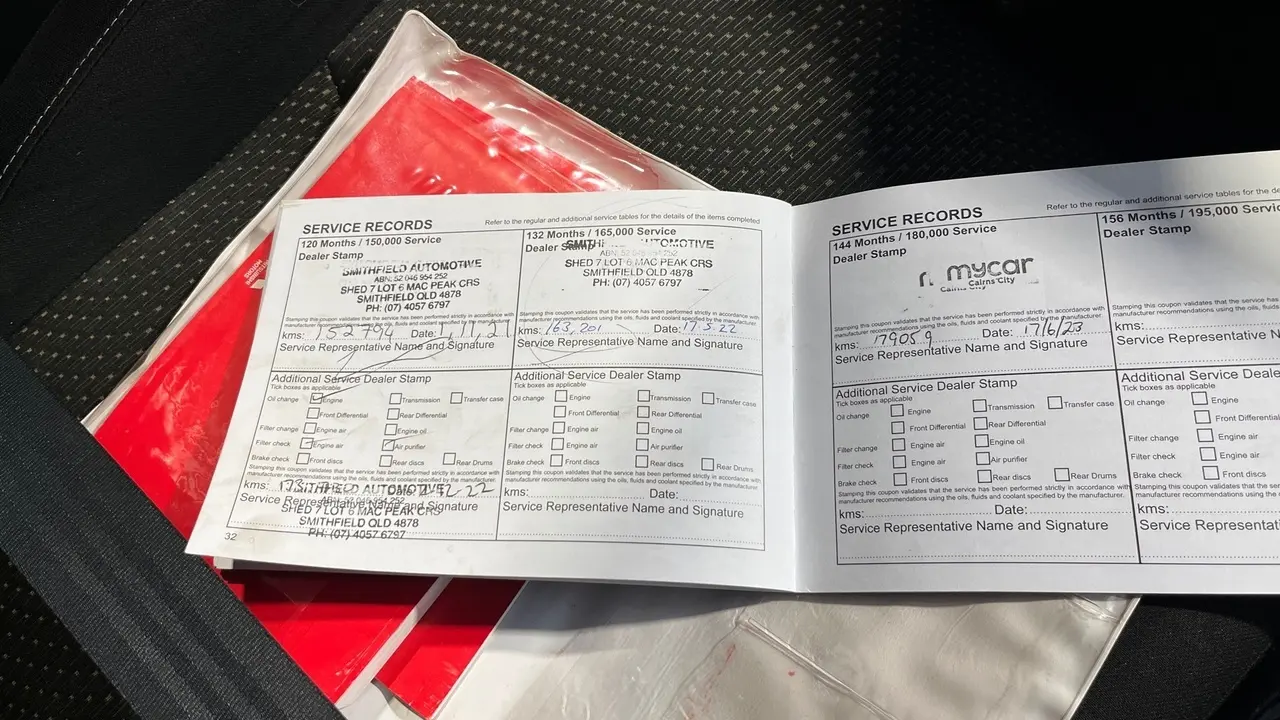 SERVICE RECORDS
Refer to the regular and additional service tables for the details of the items completed
120 Months / 150,000 Service
Dealer Stamp
SMITHFIELD AUTOMOTIVE
ABN: 52 046 954 252
SHED 7 LOT 6 MAC PEAK CRS
SMITHFIELD QLD 4878
PH: (07) 4057 6797
Stamping this coupon validates that the service has been performed strictly in accordance with
manufacturer recommendations using the oils, fluids and coolant specified by the manufacturer.
kms: 153794 Date:
Service Representative Name and Signature
132 Months / 165,000 Service
Dealer Stamp
AUTOMOTIVE
ABN: 52 046 954 252
SHED 7 LOT 6 MAC PEAK CRS
SMITHFIELD QLD 4878
PH: (07) 4057 6797
Stamping this coupon validates that the service has been performed strictly in accordance with
manufacturer recommendations using the oils, fluids and coolant specified by the manufacturer.
kms: 163,201 Date: 17.5.22
Service Representative Name and Signature
Additional Service Dealer Stamp
Tick boxes as applicable
Oil change Engine Transmission Transfer case
Front Differential Rear Differential
Filter change Engine air Engine oil
Filter check Engine air Air purifier
Brake check Front discs Rear discs Rear Drums
Stamping this coupon validates that the service has been performed strictly in accordance with
manufacturer recommendations using the oils, fluids and coolant specified by the manufacturer.
kms:
Service Representative Name and Signature
SMITHFIELD AUTOMOTIVE
SHED 7 LOT 6 MAC PEAK CRS
SMITHFIELD QLD 4878
PH: (07) 4057 6797
32
Additional Service Dealer Stamp
Tick boxes as applicable
Oil change Engine Transmission Transfer case
Front Differential Rear Differential
Filter change Engine air Engine oil
Filter check Engine air Air purifier
Brake check Front discs Rear discs Rear Drums
Stamping this coupon validates that the service has been performed strictly in accordance with
manufacturer recommendations using the oils, fluids and coolant specified by the manufacturer.
kms: Date:
Service Representative Name and Signature
SERVICE RECORDS
Refer to the regular and additional service tables for the
144 Months / 180,000 Service
Dealer Stamp
mycar
Cairns City
Stamping this coupon validates that the service has been performed strictly in accordance with
manufacturer recommendations using the oils, fluids and coolant specified by the manufacturer.
kms: 179059 Date: 17/6/23
Service Representative Name and Signature
156 Months / 195,000 Service
Dealer Stamp
Stamping this coupon validates that the service has
manufacturer recommendations using the oils,
kms:
Service Representative
Additional Service Dealer Stamp
Tick boxes as applicable
Oil change Engine Transmission Transfer case
Front Differential Rear Differential
Filter change Engine air Engine oil
Filter check Engine air Air purifier
Brake check Front discs Rear discs Rear Drums
Stamping this coupon validates that the service has been performed strictly in accordance with
manufacturer recommendations using the oils, fluids and coolant specified by the manufacturer.
kms: Date:
Service Representative Name and Signature
Additional Service
Tick boxes as applicable
Oil change Engine
Front Differential
Filter change Engine air
Filter check Engine air
Brake check Front discs
Stamping this coupon validates that the service has
manufacturer recommendations using the
kms:
Service Representative